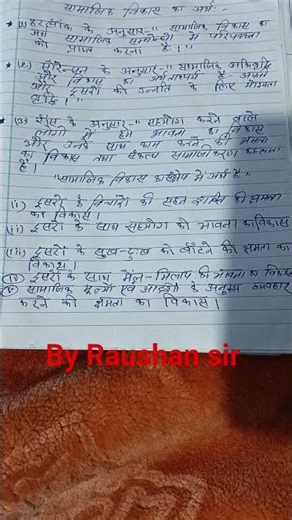 सामाजिक विकास का अर्थ:-
(1) हरलॉक के अनुसार-" सामाजिक विकास का
अर्थ सामाजिक सम्बन्धों में परिपक्वता
को प्राप्त करना है।"
(2) सोरेन्सन के अनुसार-" सामाजिक अभिवृद्धि
और विकास का अभिप्राय है- अपनी
और दूसरों की उन्नति के लिए योग्यता
वृद्धि।"
(3) के अनुसार-" सहयोग करने वाले
लोगों में हम भावना का विकास
और उनके साथ काम करने की क्षमता
का विकास तथा संकल्प समाजीकरण कहलाता
है।
"सामाजिक विकास का अर्थ है"
(i) दूसरों के विचारों की सहन शक्ति की क्षमता
का विकास।
(ii) दूसरों के साथ सहयोग की भावना का विकास
(iii) दूसरों के सुख-दुख को बाँटने की क्षमता का
विकास।
(iv) दूसरों के साथ मेल-मिलाप की भावना का विकास
(v) सामाजिक मूल्यों एवं आदर्शों के अनुरूप व्यवहार
करने की क्षमता का विकास।
By Raushan sir